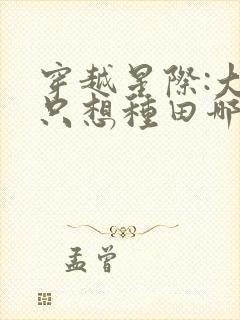 穿越星際:大
只想種田那
孟曾